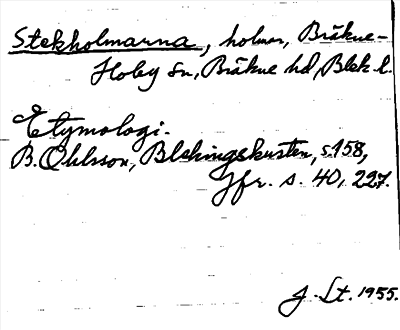 Stekholmarna, holmar, Bräkne-
Hoby sn, Bräkne hd, Blek. l.
Etymologi.
B. Ohlsson, Blekingskusten, s. 158,
Jfr. s. 40, 227.
J. Lt. 1955.